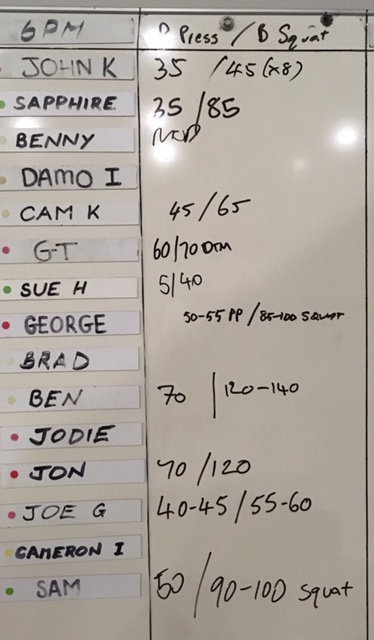 6PM Press / B Squat
JOHN K 35 /45 (x8)
SAPPHIRE 35 /85
BENNY
DAMO I
CAM K 45/65
GT 60/70
SUE H 5/40
GEORGE 50-55 PP / 85-100 SQUAT
BRAD
BEN 70 | 120-140
JODIE
JON 70 /120
JOE G 40-45/55-60
CAMERON I
SAM 50 / 90-100 squat